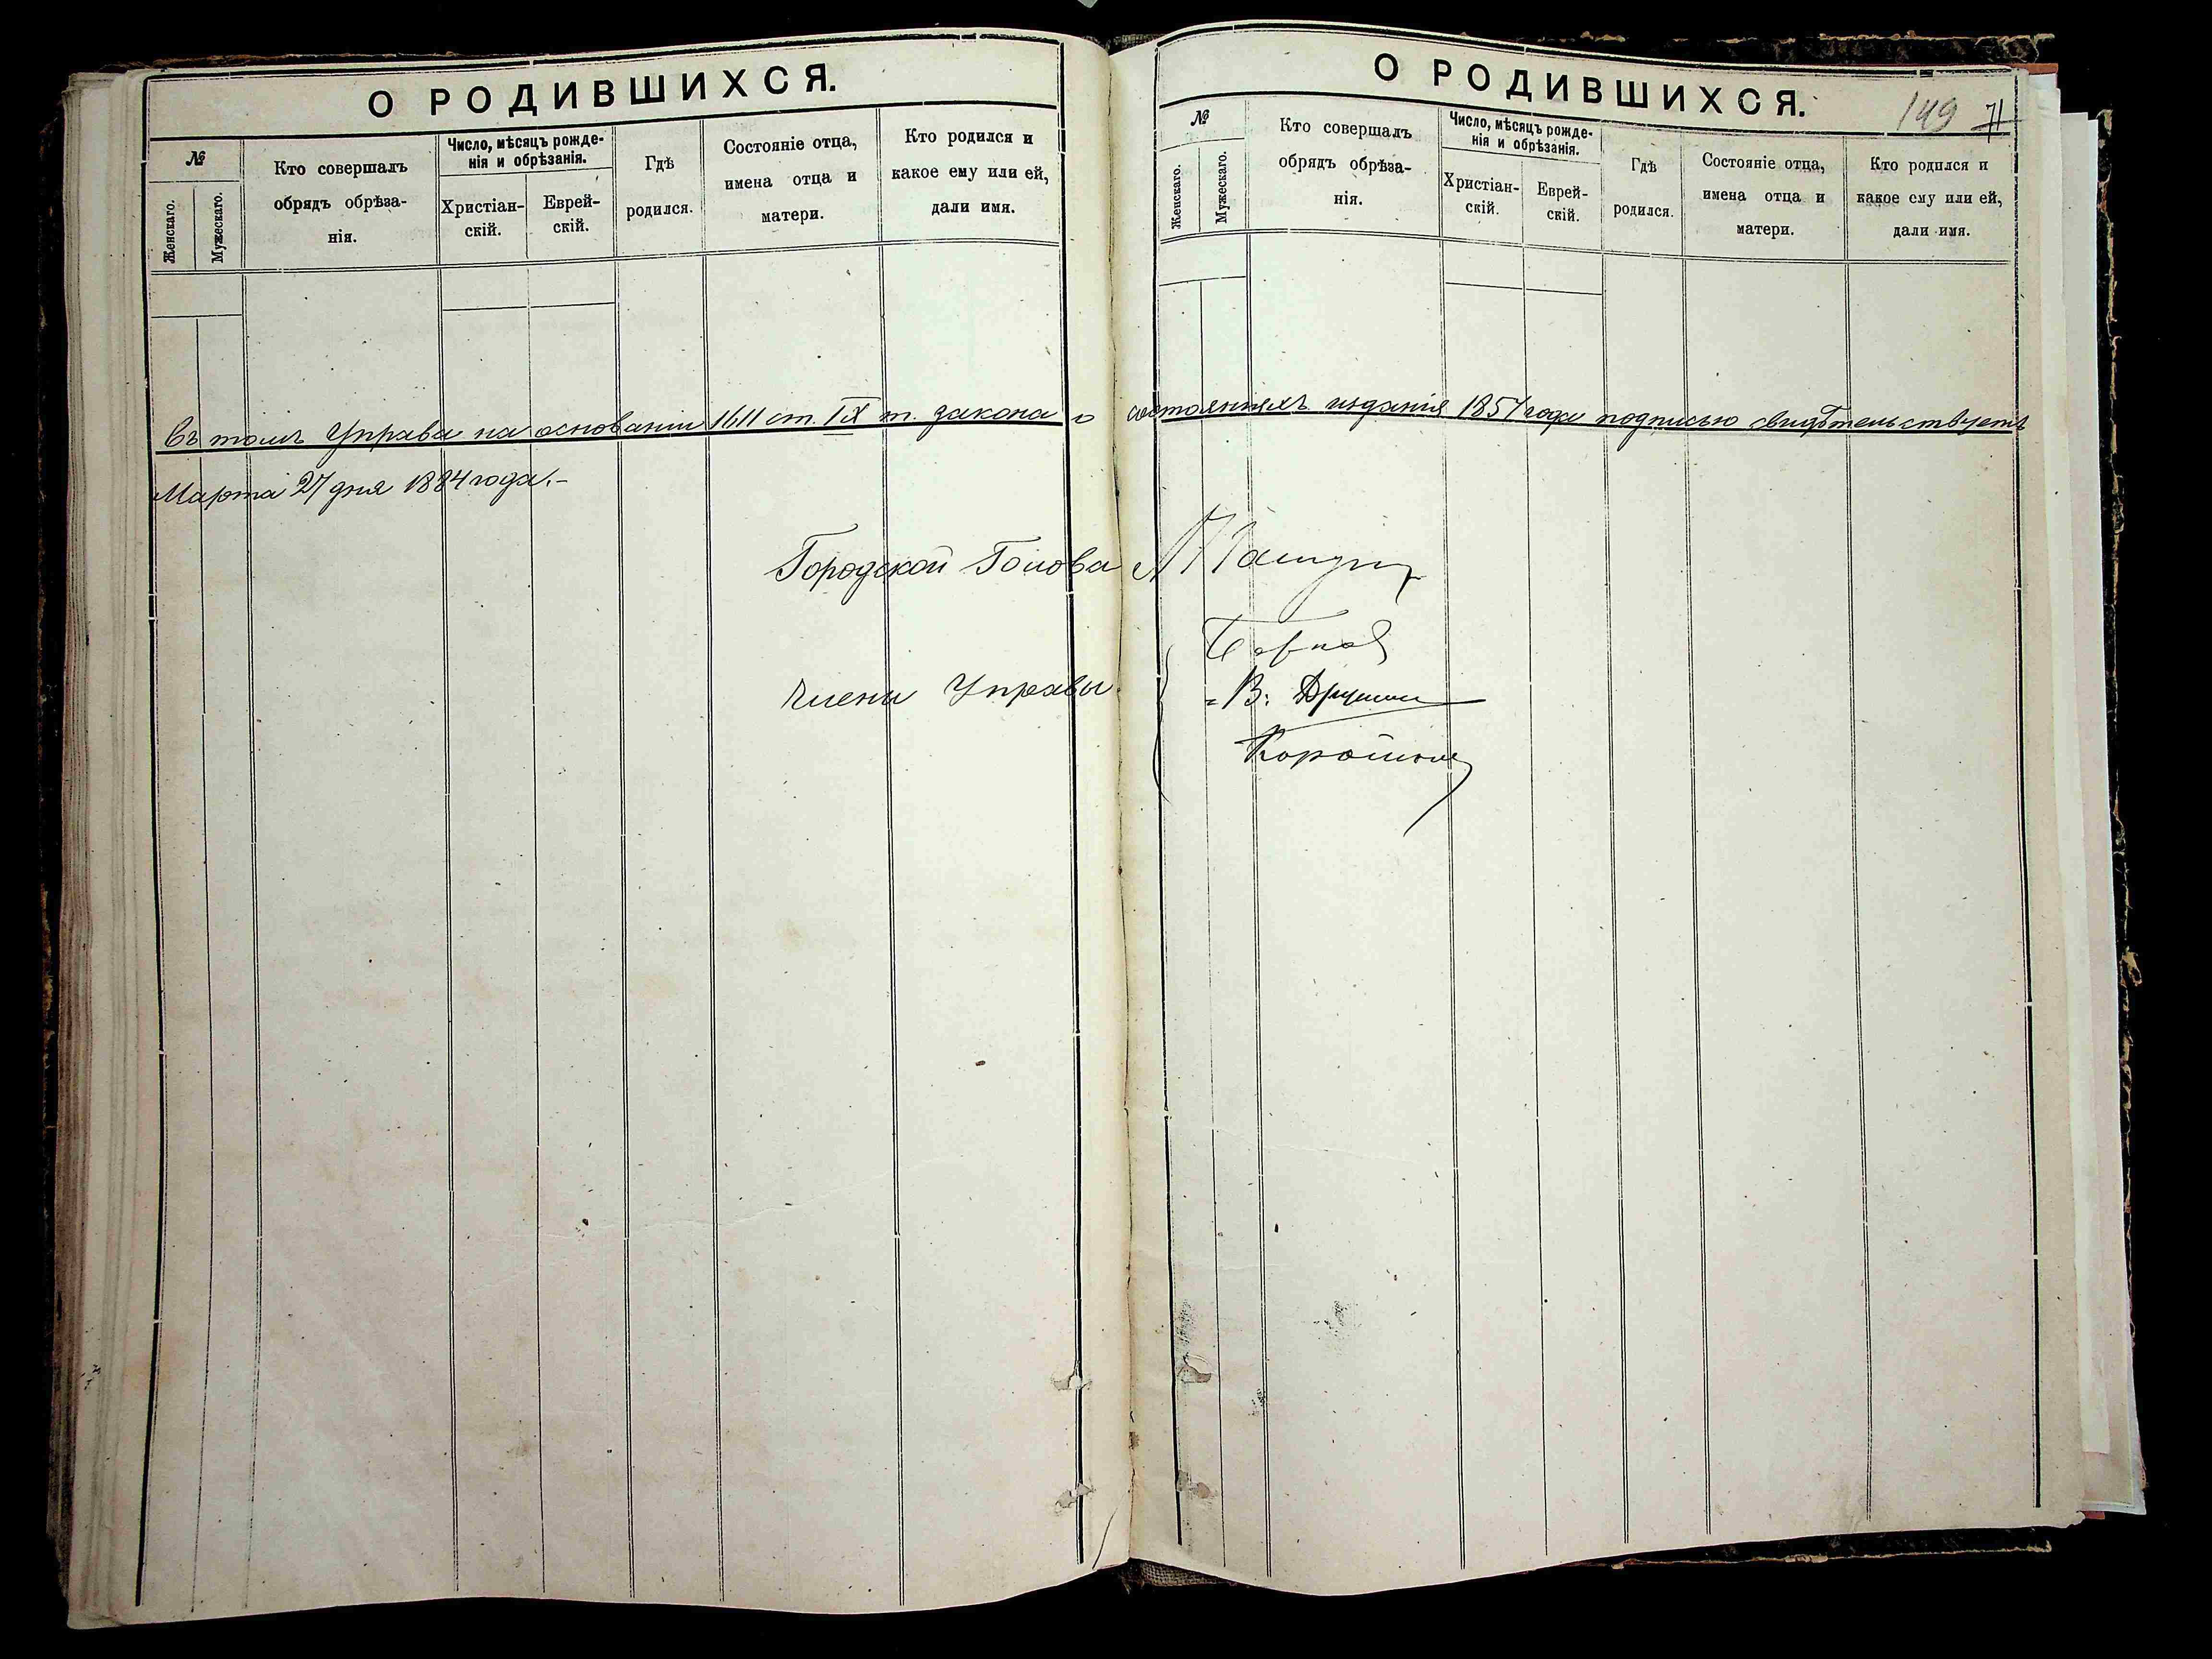 О РОДИВШИХСЯ.
№
Женскаго.
Мужескаго.
Кто совершалъ
обрядъ обрѣза-
нія.
Число, мѣсяцъ рожде-
нія и обрѣзанія.
Христіан-
скій.
Еврей-
скій.
Гдѣ
родился.
Состояніе отца,
имена отца и
матери.
Кто родился и
какое ему или ей,
дали имя.
О РОДИВШИХСЯ.
149 71
№
Женскаго.
Мужескаго.
Кто совершалъ
обрядъ обрѣза-
нія.
Число, мѣсяцъ рожде-
нія и обрѣзанія.
Христіан-
скій.
Еврей-
скій.
Гдѣ
родился.
Состояніе отца,
имена отца и
матери.
Кто родился и
какое ему или ей,
дали имя.
Въ томъ Управа на основаніи 1611 ст. IX т. закона о состояніяхъ изданія 1857 года подписью свидѣтельствуетъ
Марта 27 дня 1884 года.-
Городской Голова
Члены Управы
В.